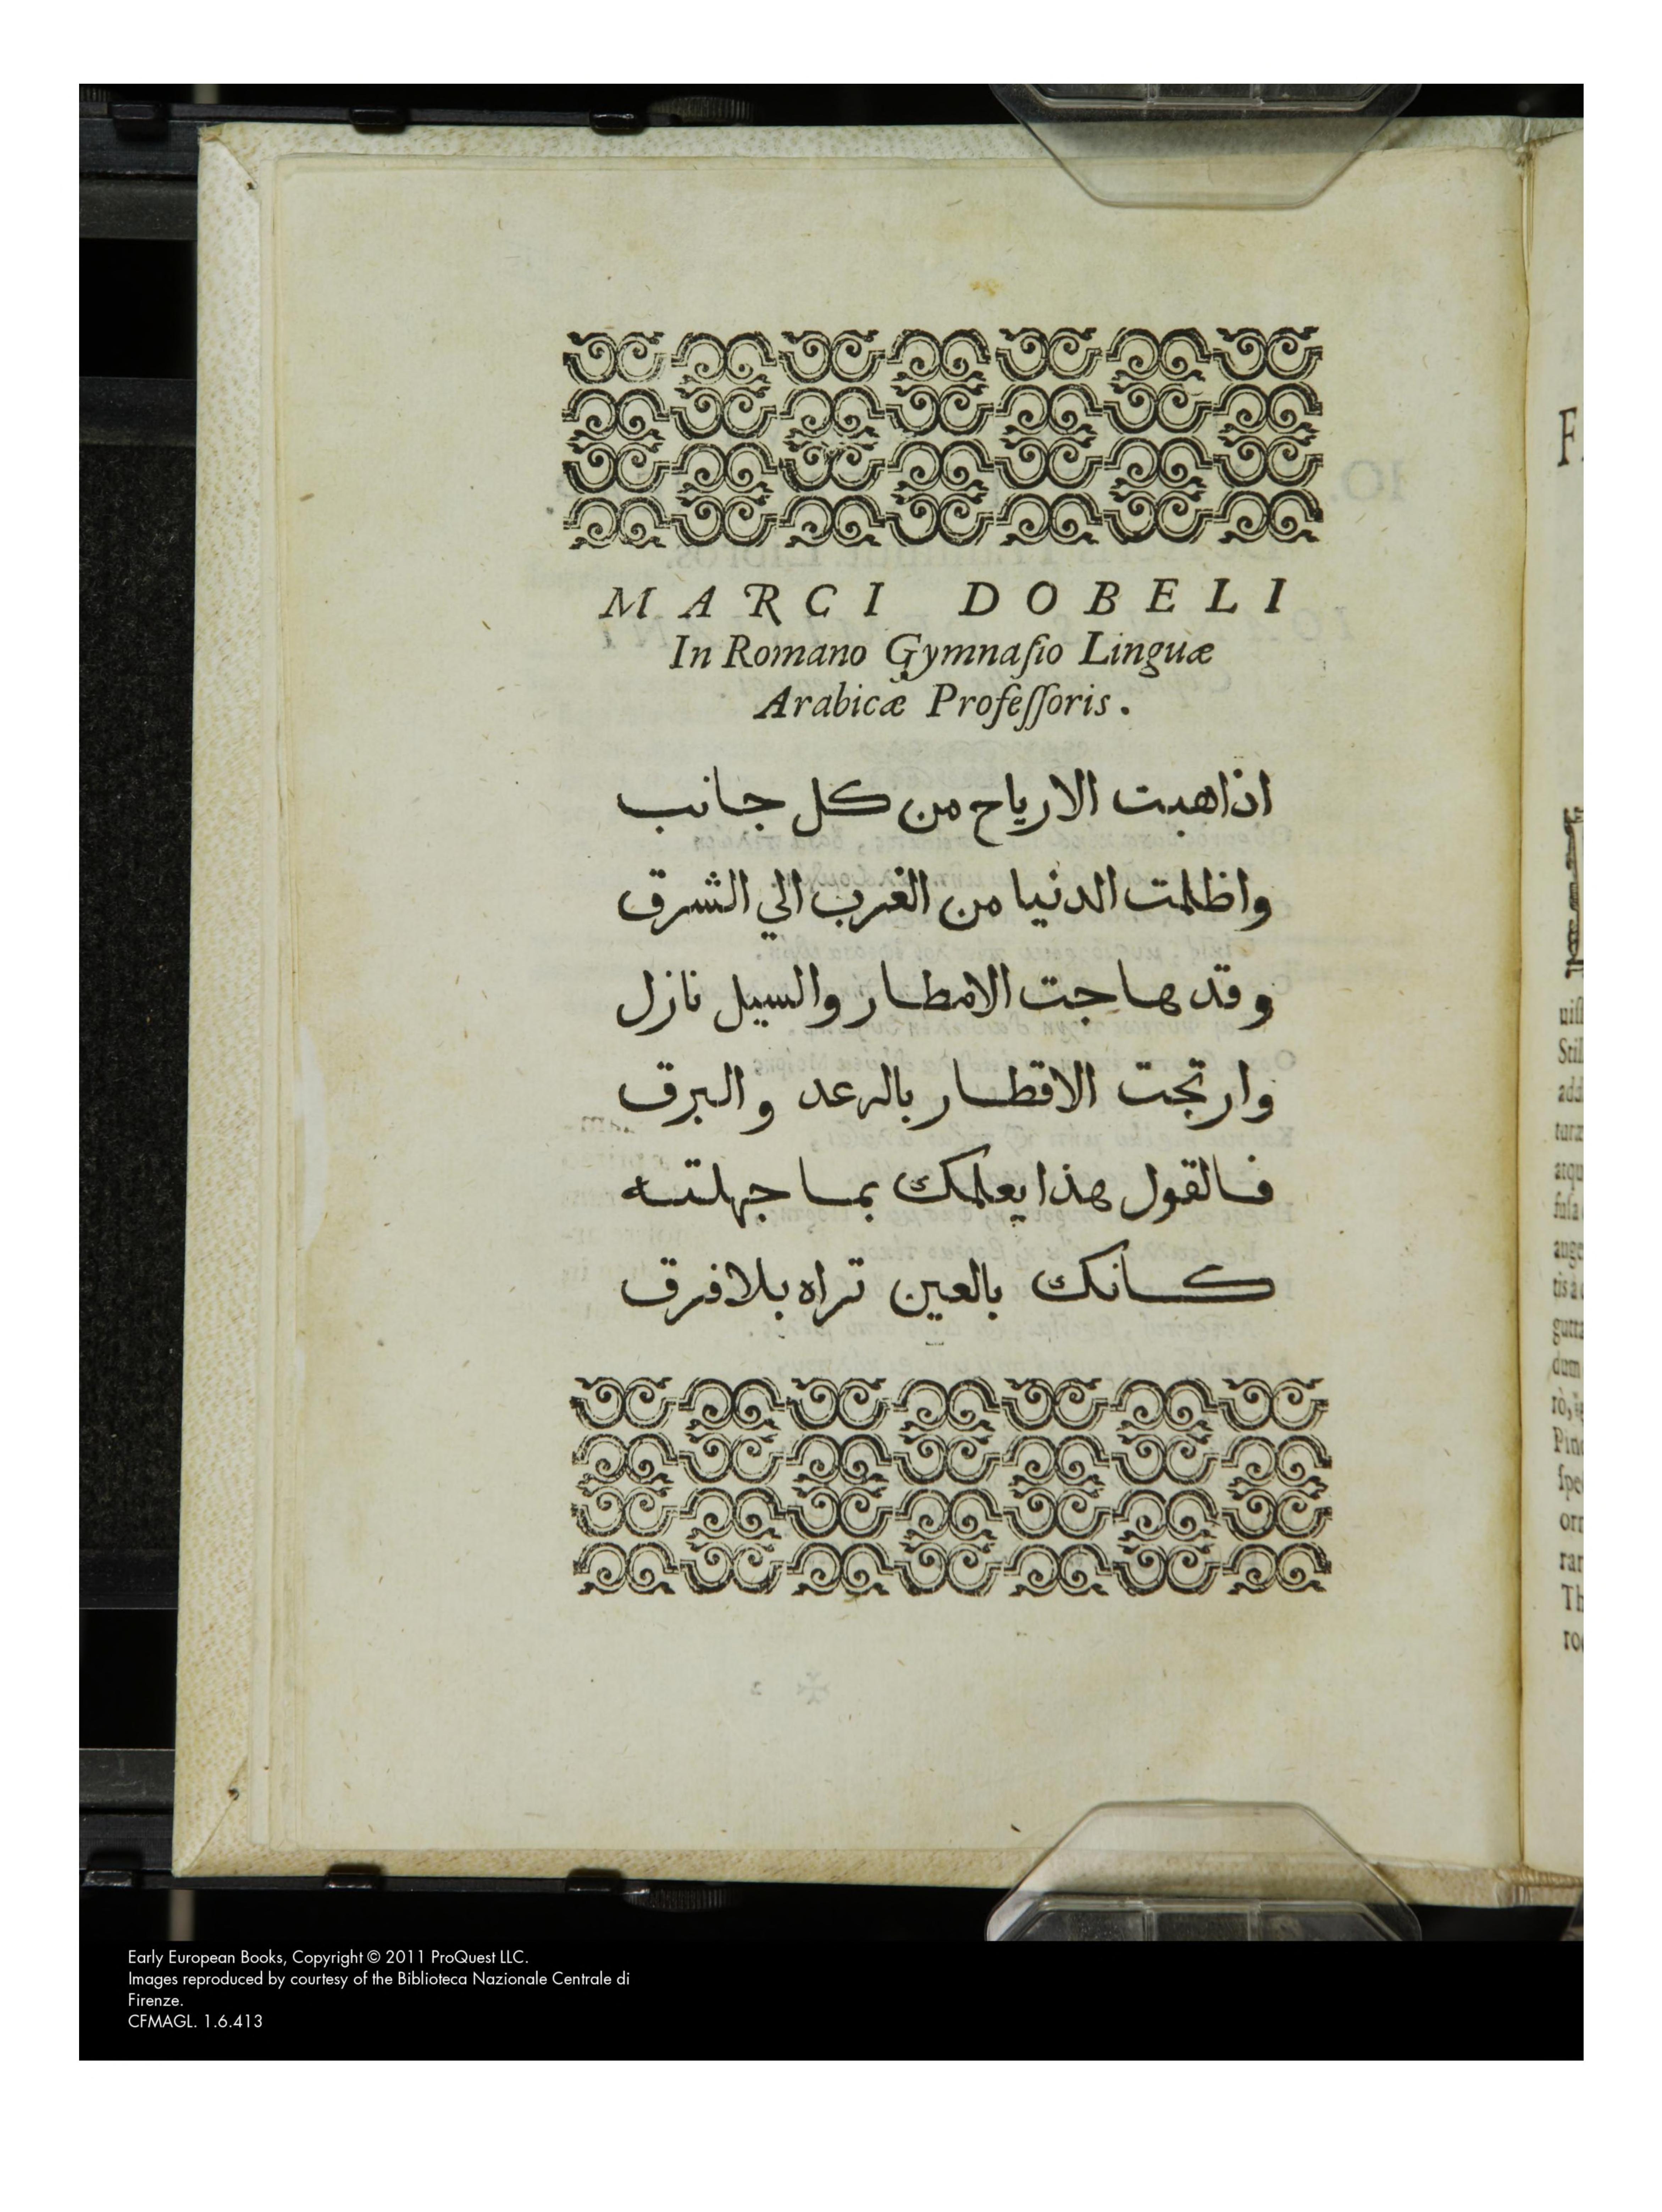 MARCI DOBELI
In Romano Gymnaſio Linguæ
Arabicæ Profeſſoris.
اذا هبت الارياح من كل جانب
واظلمت الدنيا من الغرب الي الشرق
وقد هاجت الامطار والسيل نازل
وارتجت الاقطار بالرعد والبرق
فالقول هذا يعلمك بما جهلته
كانك بالعين تراه بلا فرق
F
uiſ
Stil
add
turæ
atqu
fuſa
auge
tis a
gutt
dum
rò,
Pind
ſpe
orr
rar
Th
ro
Early European Books, Copyright © 2011 ProQuest LLC.
Images reproduced by courtesy of the Biblioteca Nazionale Centrale di
Firenze.
CFMAGL. 1.6.413